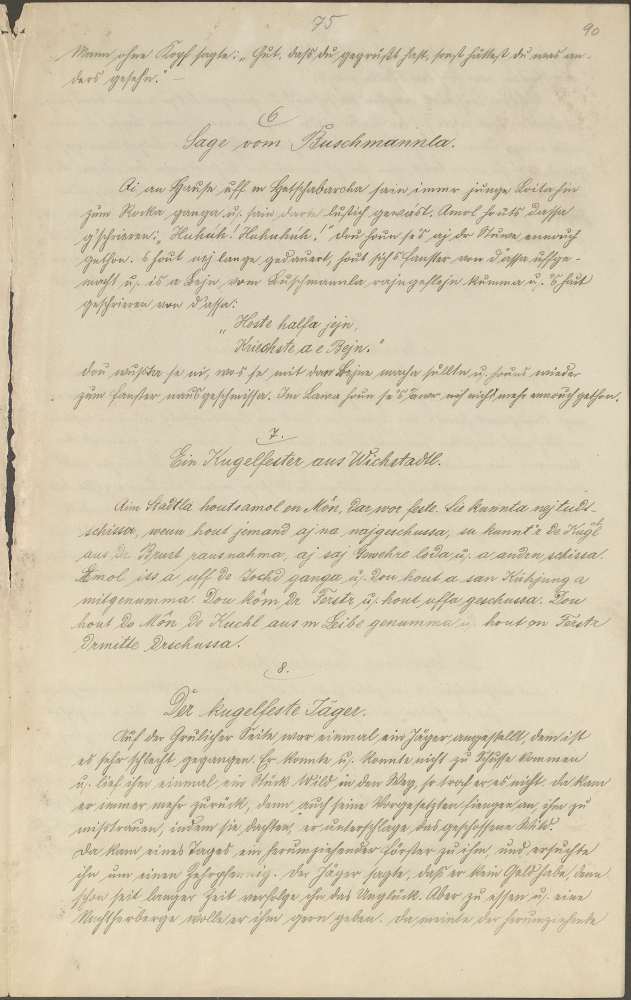 75
90
Mann ohne Kopf sagte: „Gut, daß du gegrüßt hast, sonst hättest du was an-
ders gesehn." —
6
Sage vom Buschmannla.
Ai an Hause uff m sain immer junge Loita hin
zum Rocka ganga u. sain darte lustich gewast. Amol houts dassa
g'schrieren: „Huhuh! Huhuhuh!" Dou houn se's aj dr Stuwe ennouch
gethon. s hout nej lange gedauert, hout sich's Fanster von d'assa uffge-
macht u. is a Bejn vom Buschmannla rajn kumma u. 's hout
geschrieren von d'assa:
„Hoste halfa jejn,
Kriechste a e Bejn."
Dou wußta se ni, wos se mit dan Bejne macha sullta u. houns wieder
zum Fanster naus geschmissa. Im Lawa houn se's nich mehr ennouch gethon.
7.
Ein Kugelfester aus Wichstadtl.
Aim Stadtla hout amol en Môn, dar wor feste. Sie kunnta nej tuds-
schissa, wenn hout jemand aj na najgeschussa, su kunnt'r de Kugl
aus dr Brust rausnahma, aj saj Gewehre loda u. a anden schissa.
Emol iss a uff de Jochd ganga u. Dou hout a san Kühjung a
mitgenumma. Dou kôm dr Ferstr u. hout uffa geschussa. Dou
hout de Môn de Kuchl aus m Leibe genumma u. hout m Ferstr
drmitte drschussa.
8.
Der kugelfeste Jäger.
Auf der Grulicher Seite war einmal ein Jäger angestellt, dem ist
es sehr schlecht gegangen. Er konnte u. konnte nicht zu Schusse kommen
u. lief ihm einmal ein Stück Wild in den Weg, so traf er es nicht. Da kam
er immer mehr zurück, denn auch seine Vorgesetzten fiengen an, ihm zu
mißtrauen, indem sie dachten, er unterschlage das geschossene Wild.
Da kam eines Tages ein herumziehender Förster zu ihm und ersuchte
ihn um einen Zehrpfennig. Der Jäger sagte, daß er kein Geld habe, denn
schon seit langer Zeit verfolge ihn das Unglück. Aber zu essen u. eine
Nachtherberge wolle er ihm gern geben. Da meinte der herumziehende